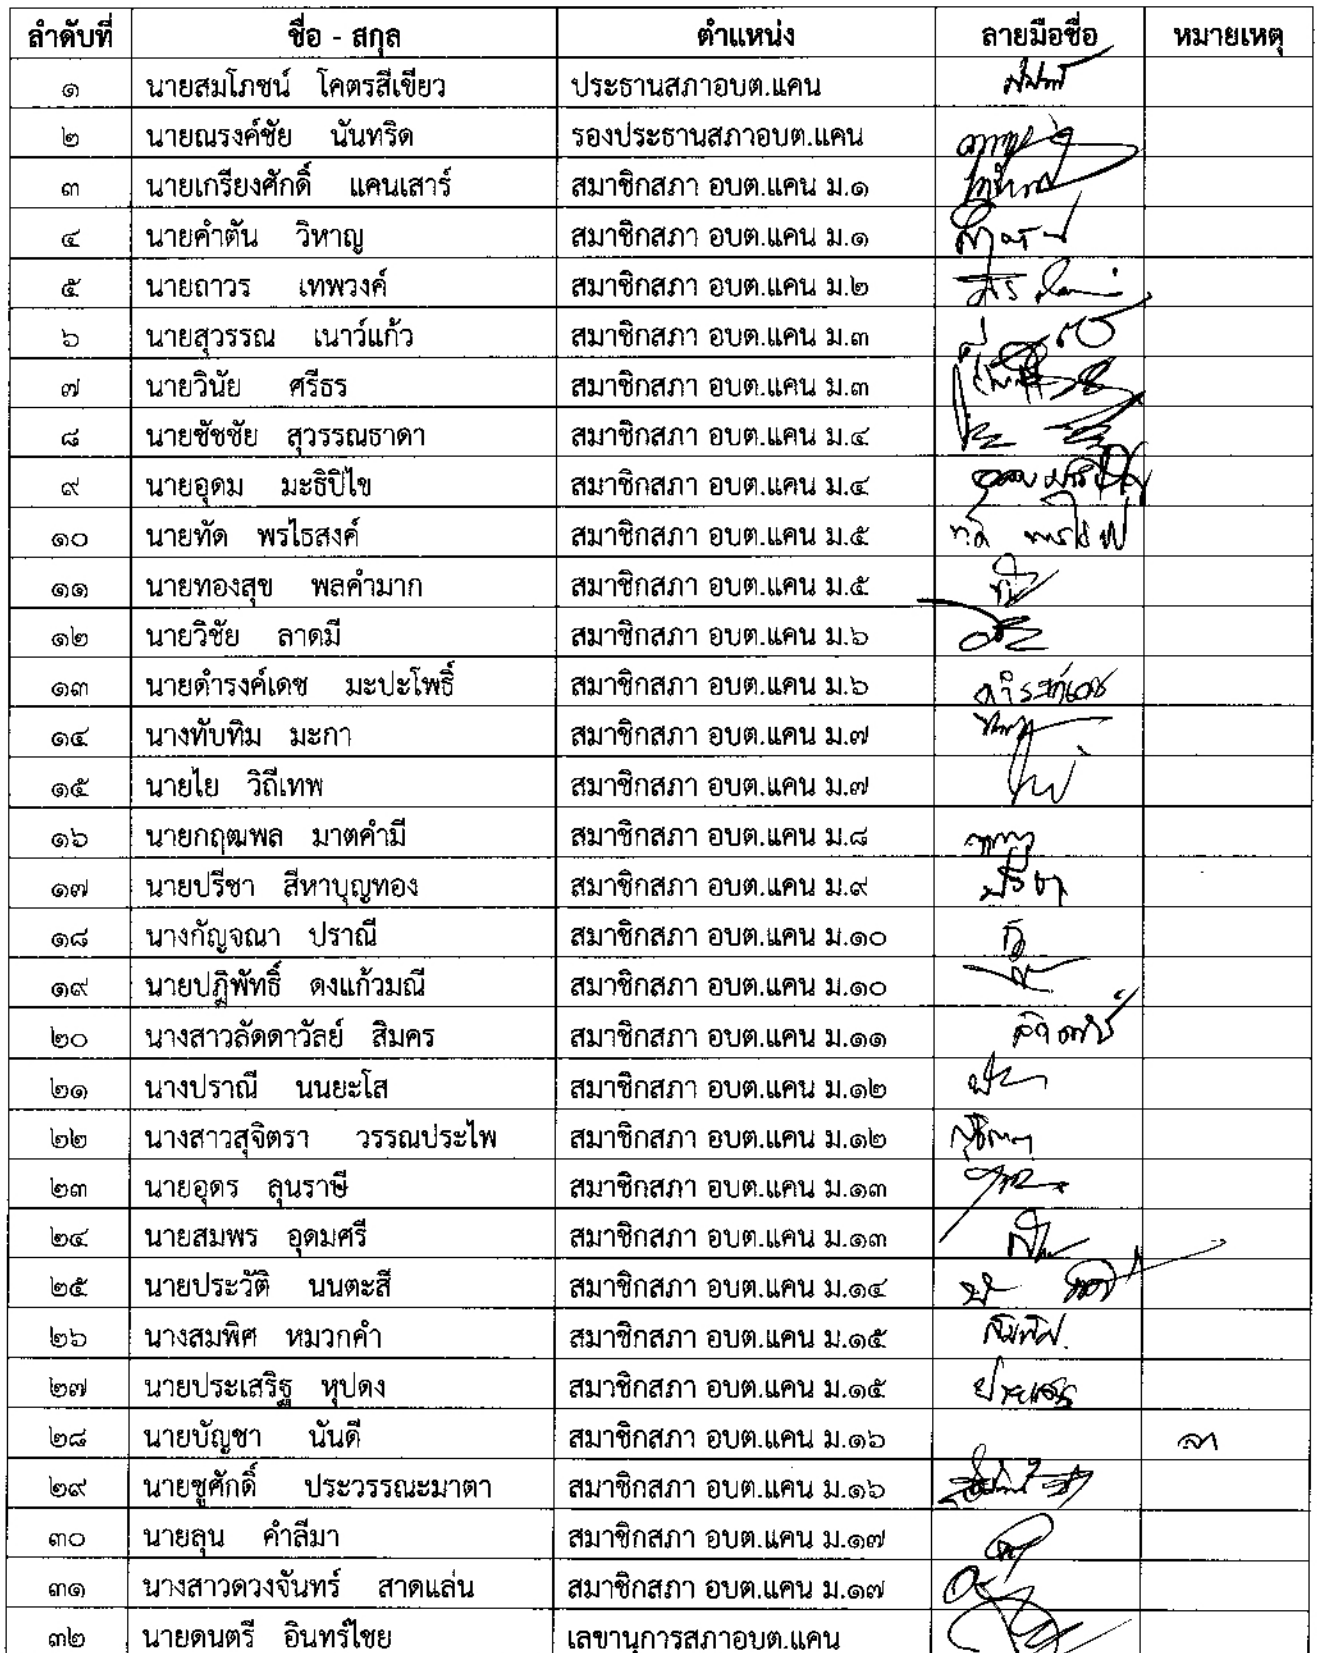 ลำดับที่ ชื่อ - สกุล ตำแหน่ง ลายมือชื่อ หมายเหตุ
๑ นายสมโภชน์ โคตรสีเขียว ประธานสภาอบต.แคน
๒ นายณรงค์ชัย นันทริด รองประธานสภาอบต.แคน
๓ นายเกรียงศักดิ์ แคนเสาร์ สมาชิกสภา อบต.แคน ม.๑
๔ นายคำตัน วิหาญ สมาชิกสภา อบต.แคน ม.๑
๕ นายถาวร เทพวงค์ สมาชิกสภา อบต.แคน ม.๒
๖ นายสุวรรณ เนาว์แก้ว สมาชิกสภา อบต.แคน ม.๓
๗ นายวินัย ศรีธร สมาชิกสภา อบต.แคน ม.๓
๘ นายชัชชัย สุวรรณธาดา สมาชิกสภา อบต.แคน ม.๔
๙ นายอุดม มะธิปิไข สมาชิกสภา อบต.แคน ม.๔
๑๐ นายทัด พรไธสงค์ สมาชิกสภา อบต.แคน ม.๕
๑๑ นายทองสุข พลคำมาก สมาชิกสภา อบต.แคน ม.๕
๑๒ นายวิชัย ลาดมี สมาชิกสภา อบต.แคน ม.๖
๑๓ นายดำรงค์เดช มะปะโพธิ์ สมาชิกสภา อบต.แคน ม.๖ ดำรงค์เดช
๑๔ นางทับทิม มะกา สมาชิกสภา อบต.แคน ม.๗
๑๕ นายไย วิถีเทพ สมาชิกสภา อบต.แคน ม.๗
๑๖ นายกฤฒพล มาตคำมี สมาชิกสภา อบต.แคน ม.๘
๑๗ นายปรีชา สีหาบุญทอง สมาชิกสภา อบต.แคน ม.๙ ปรีชา
๑๘ นางกัญจณา ปราณี สมาชิกสภา อบต.แคน ม.๑๐
๑๙ นายปฎิพัทธิ์ ดงแก้วมณี สมาชิกสภา อบต.แคน ม.๑๐
๒๐ นางสาวลัดดาวัลย์ สิมคร สมาชิกสภา อบต.แคน ม.๑๑
๒๑ นางปราณี นนยะโส สมาชิกสภา อบต.แคน ม.๑๒
๒๒ นางสาวสุจิตรา วรรณประไพ สมาชิกสภา อบต.แคน ม.๑๒
๒๓ นายอุดร ลุนราษี สมาชิกสภา อบต.แคน ม.๑๓
๒๔ นายสมพร อุดมศรี สมาชิกสภา อบต.แคน ม.๑๓
๒๕ นายประวัติ นนตะสี สมาชิกสภา อบต.แคน ม.๑๔
๒๖ นางสมพิศ หมวกคำ สมาชิกสภา อบต.แคน ม.๑๕
๒๗ นายประเสริฐ หุปดง สมาชิกสภา อบต.แคน ม.๑๕ ประเสริฐ
๒๘ นายบัญชา นันดี สมาชิกสภา อบต.แคน ม.๑๖ ลา
๒๙ นายชูศักดิ์ ประวรรณะมาตา สมาชิกสภา อบต.แคน ม.๑๖
๓๐ นายลุน คำลีมา สมาชิกสภา อบต.แคน ม.๑๗
๓๑ นางสาวดวงจันทร์ สาดแล่น สมาชิกสภา อบต.แคน ม.๑๗
๓๒ นายดนตรี อินทร์ไชย เลขานุการสภาอบต.แคน